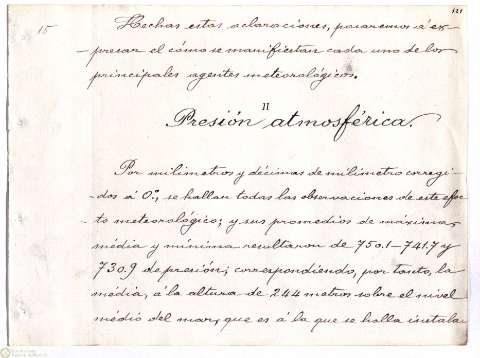 121
15
Hechas estas aclaraciones, pasaremos á ex-
-presar el cómo se manifiestan cada uno de los
principales agentes meteorológicos.
II
Presión atmosférica.
Por milimetros y décimas de milimetro corregi-
-dos á 0.º, se hallan todas las observaciones de este efec-
-to meteorológico; y sus promedios de máxima,
média y mínima resultaron de 750.1-741.7 y
730.9 de presión; correspondiendo, por tanto, la
média, á la altura de 244 metros sobre el nivel
médio del mar, que es á la que se halla instala-